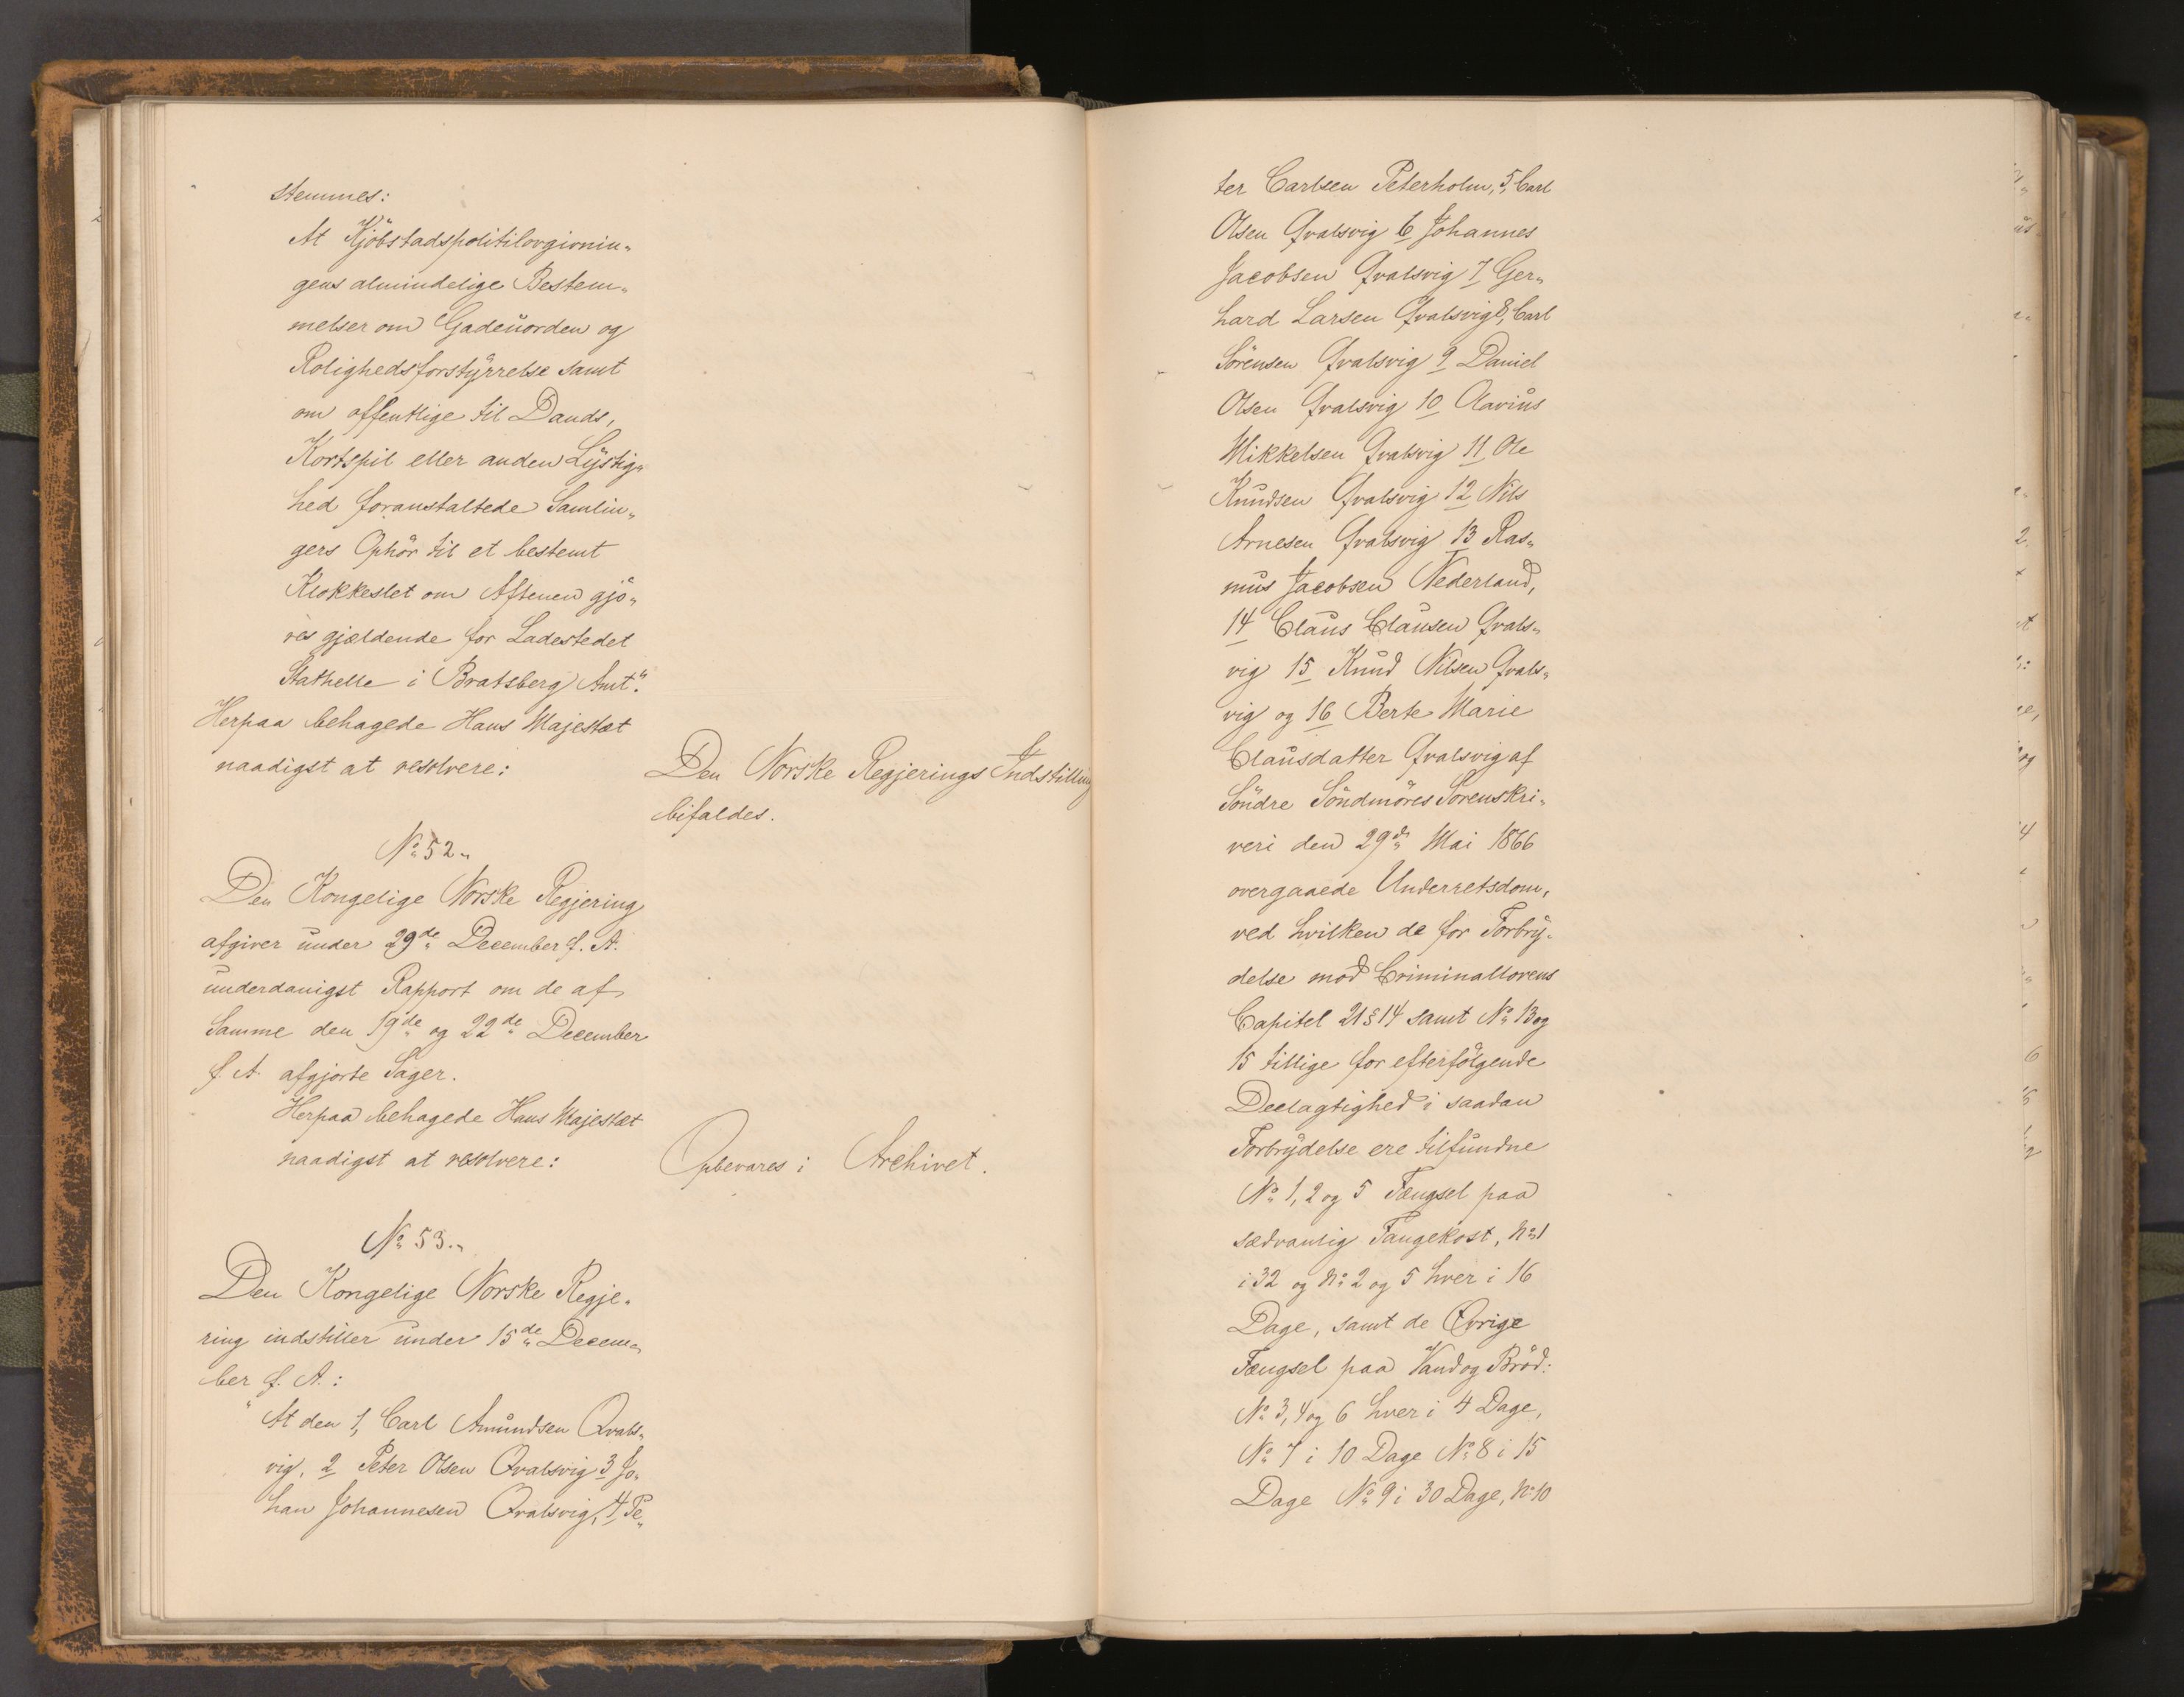 stemmes:
At Kjöbstadspolitilovgivnin„
gens almindelige Bestem„
melser om Gadeuorden og
Rolighedsforstyrrelse samt
om offentlige til Dands,
Kortspil eller anden Lystig„
hed foranstaltede Samlin„
gers Ophör til et bestemt
Klokkeslet om Aftenen gjö„
res gjældende for Ladestedet
Stathelle i Bratsberg Amt."
Herpaa behagede Hans Majestæt
naadigst at resolvere:
Den Norske Regjerings Indstilling
bifaldes.
No 52„
Den Kongelige Norske Regjering
afgiver under 29de December f. A.
underdanigst Rapport om de af
Samme den 19de og 22de December
f. A. afgjorte Sager.
Herpaa behagede Hans Majestæt
naadigst at resolvere:
Opbevares i Archivet.
No 53.„
Den Kongelige Norske Regje„
ring indstiller under 15de Decem„
ber f. A.:
"At den 1, Carl Amundsen Qvals„
vig, 2 Peter Olsen Qvalsvig 3 Jo„
han Johannesen Qvalsvig, 4, Pe„
ter Carlsen Peterholm, 5, Carl
Olsen Qvalsvig 6 Johannes
Jacobsen Qvalsvig 7 Ger„
hard Larsen Qvalsvig 8, Carl
Sörensen Qvalsvig 9 Daniel
Olsen Qvalsvig 10 Olavius
Mikkelsen Qvalsvig 11 Ole
Knudsen Qvalsvig 12 Nils
Arnesen Qvalsvig 13 Ras„
mus Jacobsen Nederland,
14 Claus Clausen Qvals„
vig 15 Knud Nilsen Qvals„
vig og 16 Berte Marie
Clausdatter Qvalsvig af
Söndre Söndmöres Sorenskri„
veri den 29de Mai 1866
overgaaede Underretsdom,
ved hvilken de for Forbry„
delse mod Criminallovens
Capitel 21 § 14 samt No 13 og
15 tillige for efterfölgende
Deelagtighed i saadan
Forbrydelse ere tilfundne
No 1, 2 og 5 Fængsel paa
sædvanlig Fangekost, No 1
i 32 og No 2 og 5 hver i 16
Dage, samt de Øvrige
Fængsel paa Vand og Bröd:
No 3, 4 og 6 hver i 4 Dage,
No 7 i 10 Dage No 8 i 15
Dage No 9 i 30 Dage, No 10